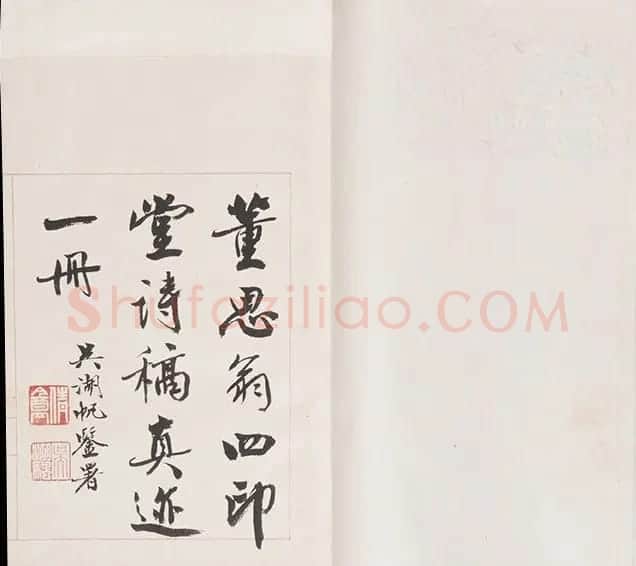 董思翁四印
堂诗稿真迹
一冊
吴湖帆鑒署
Shufaziliao.COM